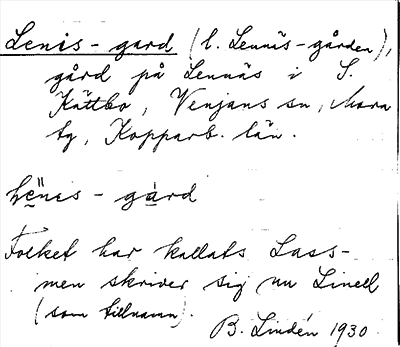 Lenis-gard (l. Lennäs-gården),
gård på Lennäs i S.
Kättbo, Venjans sn, Mora
tg, Kopparb. län.
lënis-gård
Folket har kallats Lass-
men skriver sig nu Linell
(som tillnamn).
B. Lindén 1930